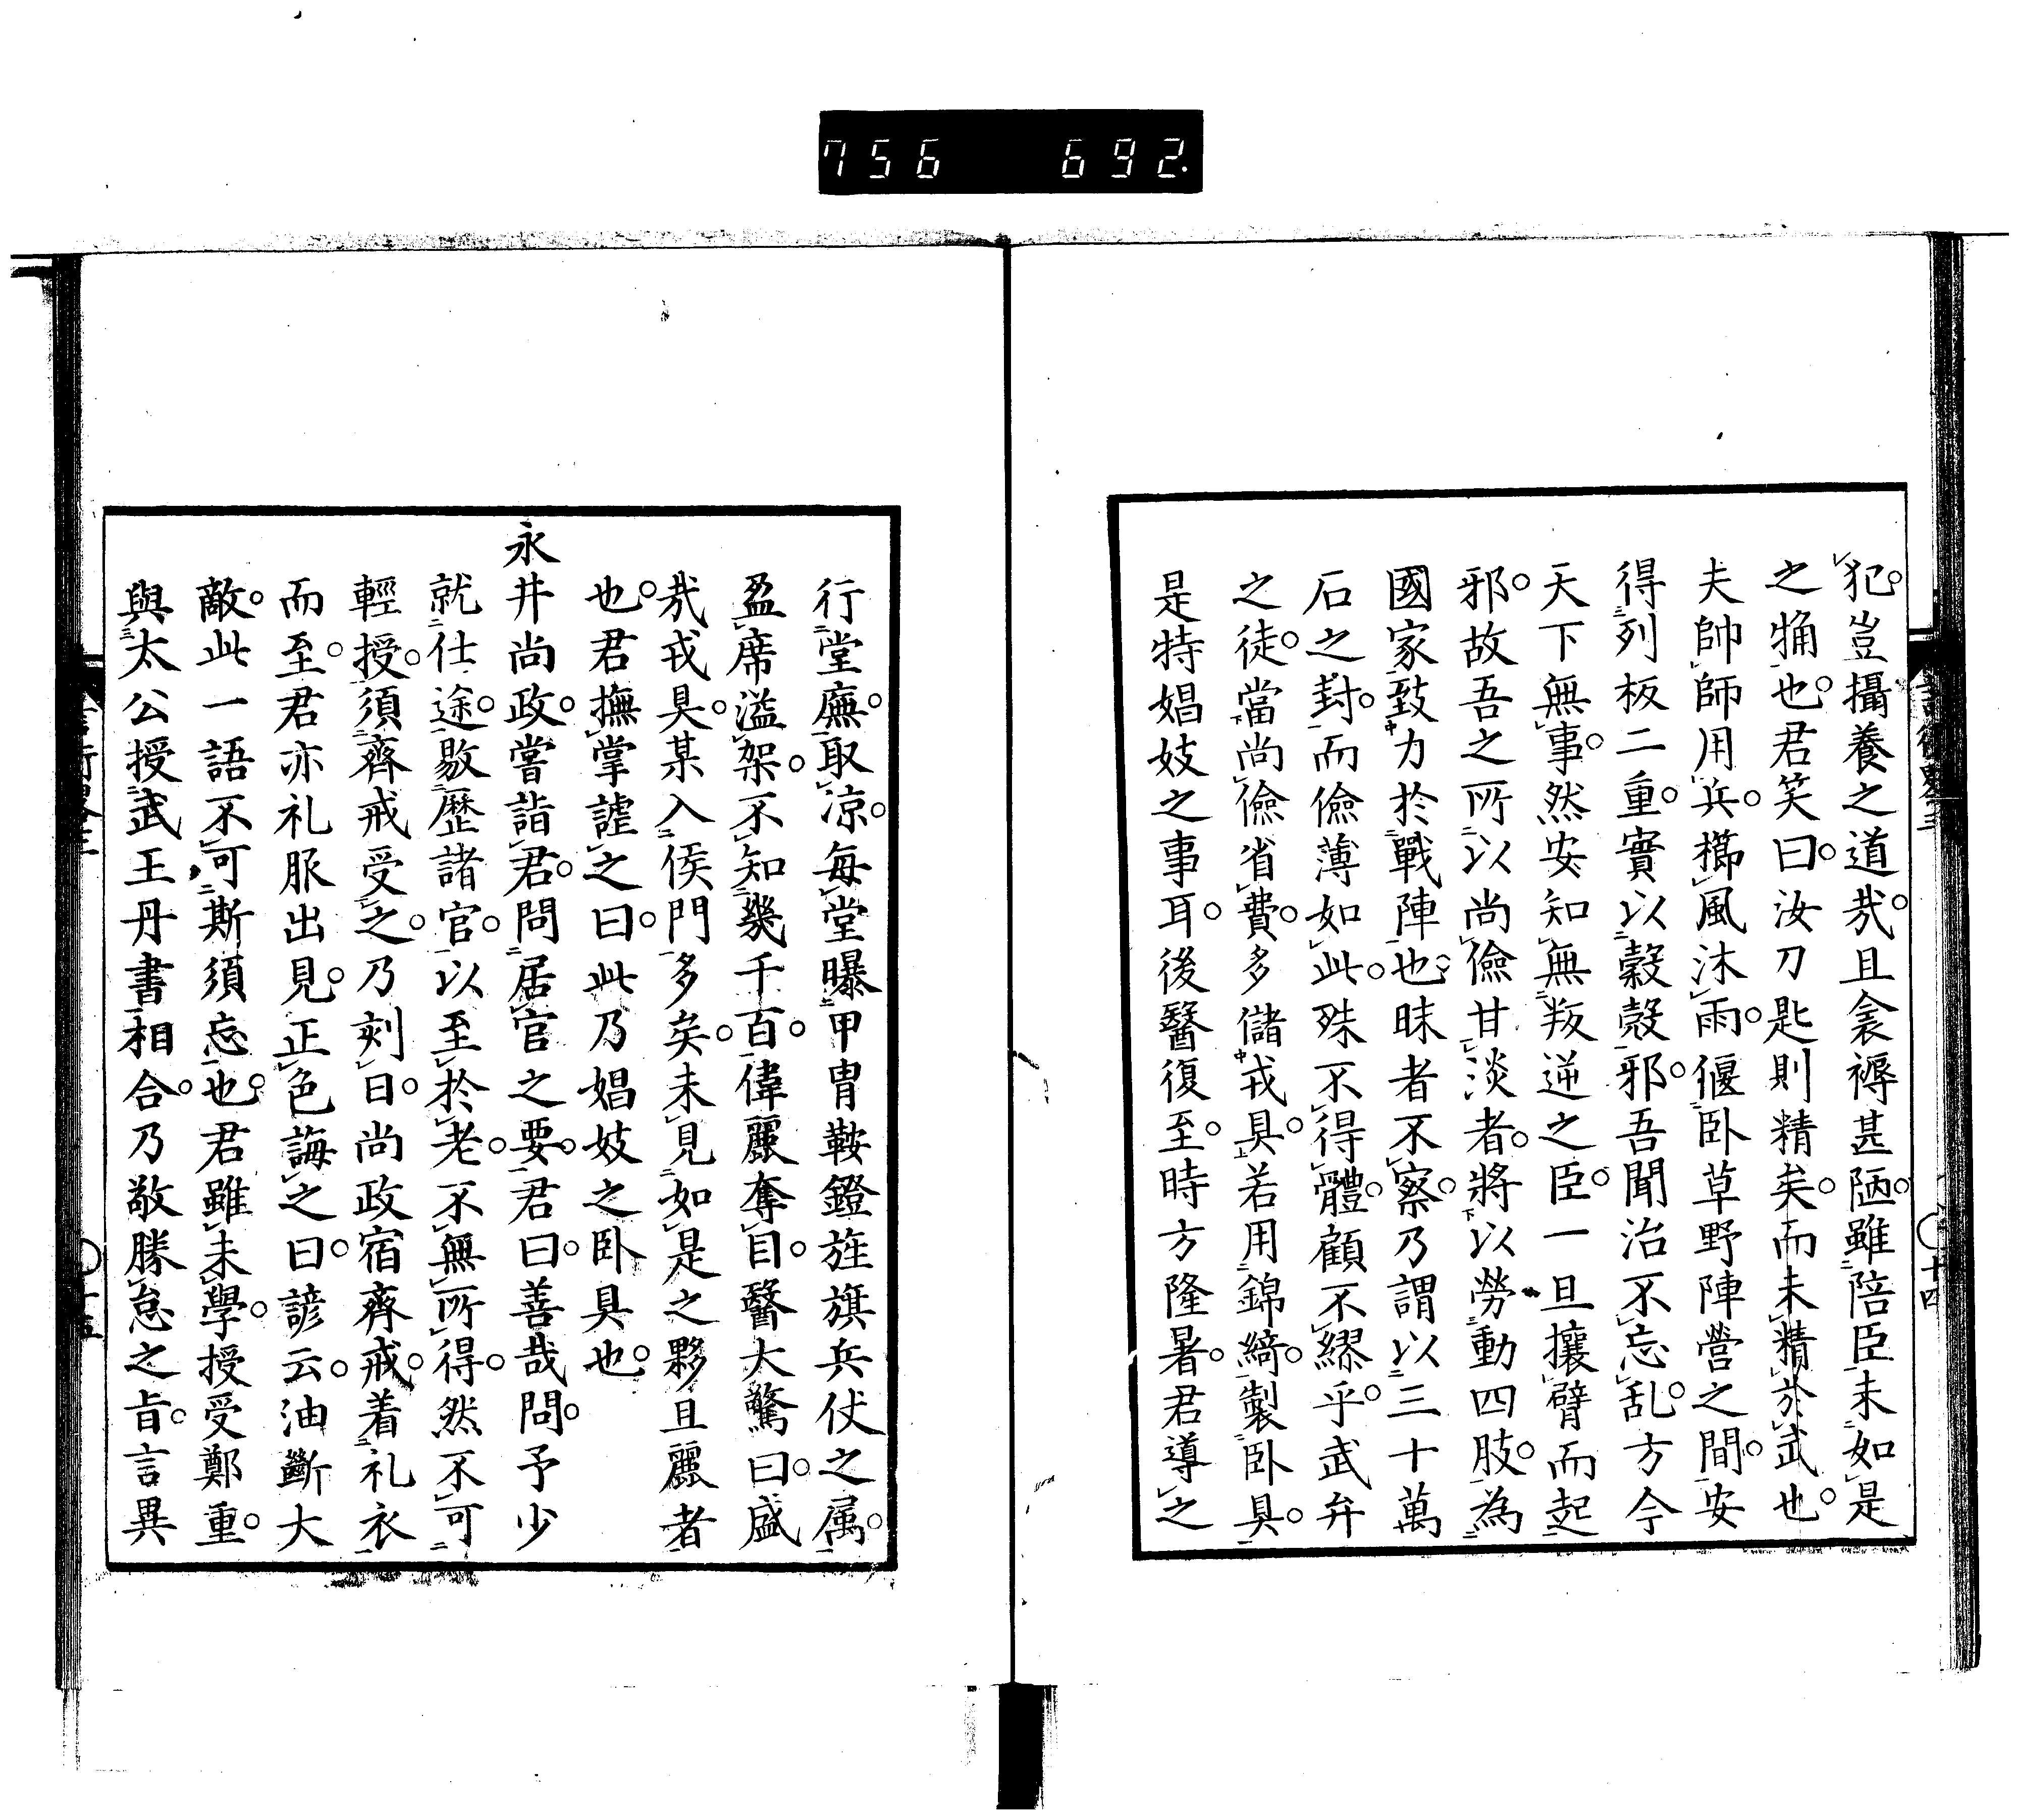 756 692.
犯。豈攝養之道哉。且衾褥甚陋。雖陪臣未如是
之觕也。君笑曰。汝刀匙則精矣。而未精於武也。
夫帥師用兵。櫛風沐雨。偃臥草野陣營之間。安
得列板二重。實以穀殼邪。吾聞治不忘乱。方今
天下無事。然安知無叛逆之臣。一旦攘臂而起
邪。故吾之所以尚儉甘淡者。將以勞動四肢。為
國家致力於戰陣也。昧者不察。乃謂以三十萬
石之封。而儉薄如此。殊不得體。顧不繆乎。武弁
之徒。當尚儉省費。多儲戎具。若用錦綺。製臥具。
是特娼妓之事耳。後醫復至。時方隆暑。君導之
行堂廡。取凉。每堂曝甲冑鞍鐙旌旗兵仗之属。
盈席溢架。不知幾千百。偉麗奪目。醫大驚曰。盛
哉戎具。某入侯門多矣。未見如是之夥且麗者
也。君撫掌謔之曰。此乃娼妓之臥具也。
永井尚政。嘗詣君。問居官之要。君曰。善哉問。予少
就仕途。敭歷諸官。以至於老。不無所得。然不可
輕授。須齊戒受之。乃刻日。尚政宿齊戒。着礼衣
而至。君亦礼服出見。正色誨之曰。諺云。油斷大
敵。此一語不可斯須忘也。君雖未學。授受鄭重。
與太公授武王丹書相合。乃敬勝怠之旨。言異